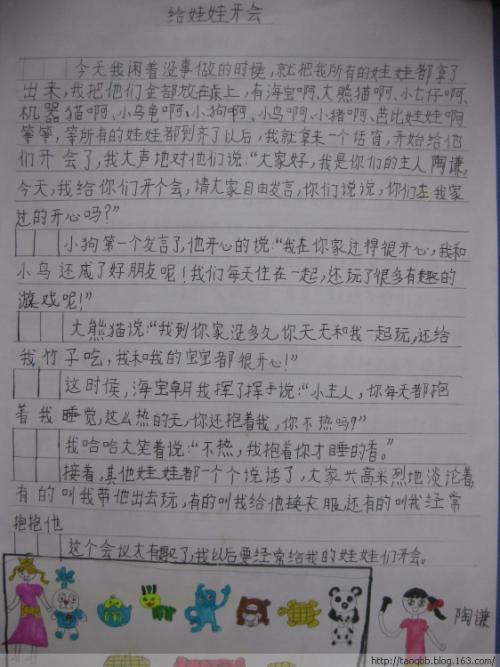 给娃娃开会
今天我闲着没事做的时候，就把我所有的娃娃都拿了
出来，我把他们全部放在床上，有海宝啊、大熊猫啊、小七仔啊、
机器猫啊、小乌龟啊、小狗啊、小鸟啊、小猪啊、芭比娃娃啊
等等，等所有的娃娃都到齐了以后，我就拿来一个话筒，开始给他
们开会了，我大声地对他们说：“大家好，我是你们的主人陶谦，
今天，我给你们开个会，请大家自由发言，你们说说，你们在我家
过的开心吗？”
小狗第一个发言了，他开心的说：“我在你家过得很开心，我和
小鸟还成了好朋友呢！我们每天住在一起，还玩了很多有趣的
游戏呢！”
大熊猫说：“我到你家没多久，你天天和我一起玩，还给
我竹子吃，我和我的宝宝都很开心！”
这时候，海宝朝我挥了挥手说：“小主人，你每天都抱
着我睡觉，这么热的天，你还抱着我，你不热吗？”
我哈哈大笑着说：“不热，我抱着你才睡的香。”
接着，其他娃娃都一个个说话了，大家兴高采烈地谈论着
有的叫我带他出去玩，有的叫我给他换衣服，还有的叫我经常
抱抱他
这个会议太有趣了，我以后要经常给我的娃娃们开会。
陶谦
http://taoqbb.blog.163.com/